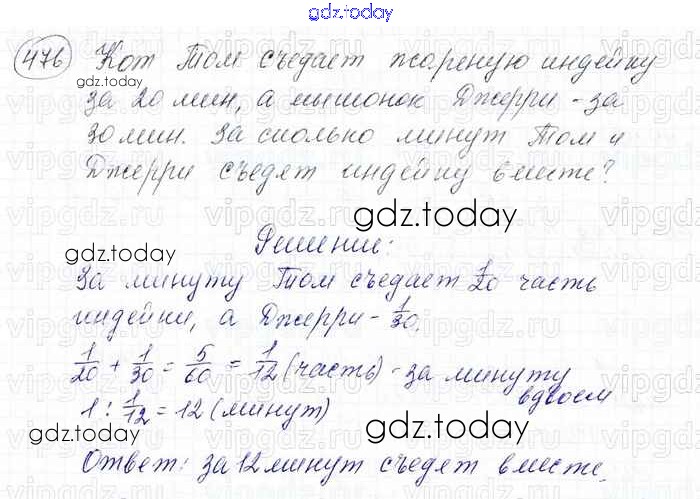 gdz.today
476 Кот Том съедает жареную индейку
gdz.today
за 20 мин, а мышонок Джерри - за
30 мин. За сколько минут Том и
Джерри съедят индейку вместе?
gdz.today
gdz.today
Решение:
За минуту Том съедает 1/20 часть
индейки, а Джерри - 1/30.
1/20 + 1/30 = 5/60 = 1/12 (часть) - за минуту
вдвоем
1 : 1/12 = 12 (минут)
gdz.today
Ответ: за 12 минут съедят вместе.